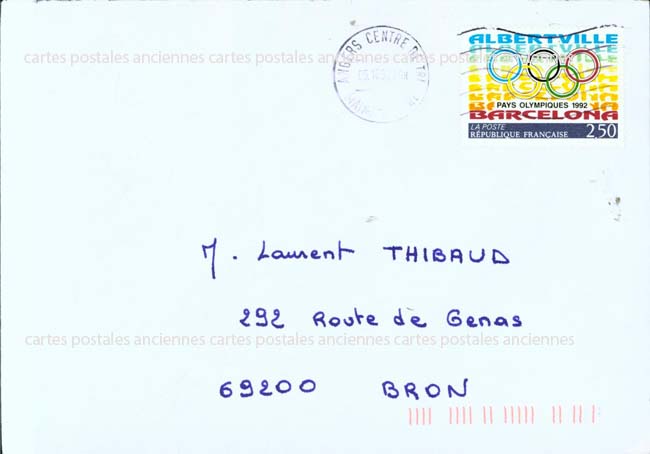 ALBERTVILLE
PAYS OLYMPIQUES 1992
BARCELONA
LA POSTE
RÉPUBLIQUE FRANÇAISE 2,50
ANGERS CENTRE DE TRI
cartes postales anciennes cartes postales anciennes cartes postales anciennes
M. Laurent THIBAUD
292 Route de Genas
cartes postales anciennes cartes postales anciennes cartes postales anciennes
69200 BRON